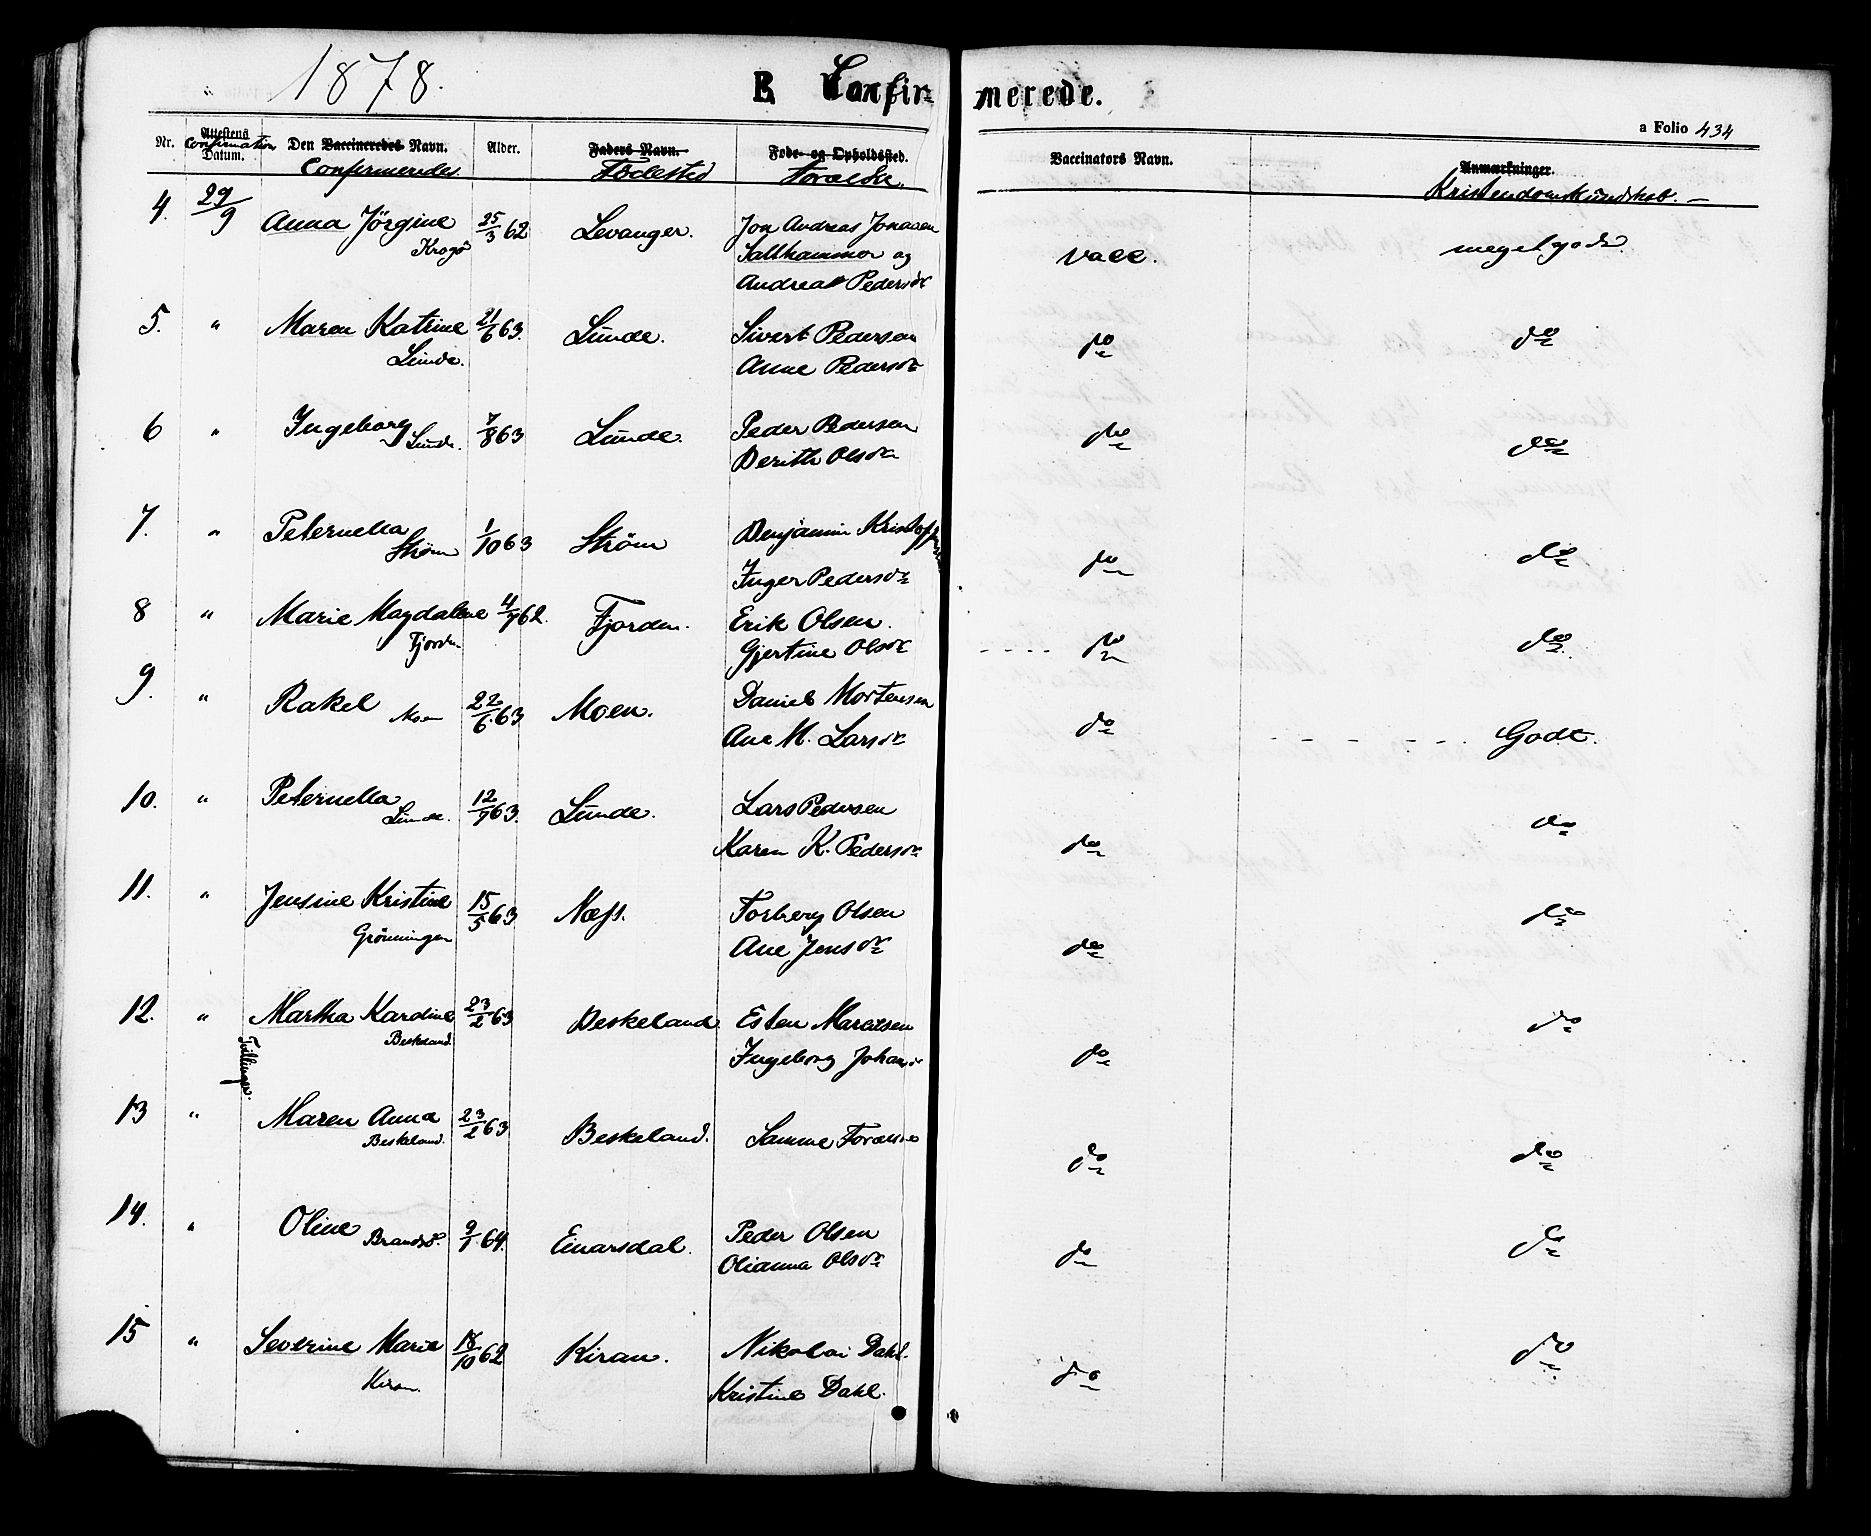 1878.
B Confirmerede.
a Folio 434
Nr. Attestens Confirmation Datum. Den Vaccineredes Navn. Confirmeredes Alder. Faders Navn. Födested Føde- og Opholdssted. Forældre Vaccinators Navn. Anmærkninger. Kristendomskundskab. -
4. 29/9 Anna Jörgine 25/3 62 Levanger. Jon Andreas Jonasen
Salthammer og vacc. meget godt.
Andrea Pedersdr
5. " Maren Katrine 21/6 63. Lunde. Sivert Pedersen
Lunde. Anne Pedersdr do do
6 " Ingeborg Lunde. 7/8 63 Lunde. Peder Pedersen
Berith Olsdr do do
7. " Peternella 1/10 63 Strøm Benjamin Kristoffersen
Strøm Inger Pedersdr do do
8 " Marie Magdalene 4/7 62. Fjorden. Erik Olsen.
Fjorden. Gjertine Olsdr - - - - do do
9. " Rakel Moen 22/6 63 Moen. Daniel Mortensen
Ane M. Larsdr do - - - - - Godt.
10. " Peternella 12/7 63. Lunde. Lars Pedersen
Lunde. Karen K. Pedersdr do do
11. " Jensine Kristine 15/5 63 Næss. Torberg Olsen
Grönningen Ane Jensdr do do
12. " Martha Kardine 23/2 63 Beskeland Esten Marcusen
Beskeland Ingeborg Johansdr do do
Tvillinger.
13 " Maren Anna 23/2 63 Beskeland. Samme Forældre
Beskeland. do do
14. " Oline 9/1 64. Einarsdal. Peder Olsen
Olianna Olsdr do do
15 " Severine Marie 18/10 62 Kiran. Nikolai Dahl.
Kiran. Kristine Dahl. do do